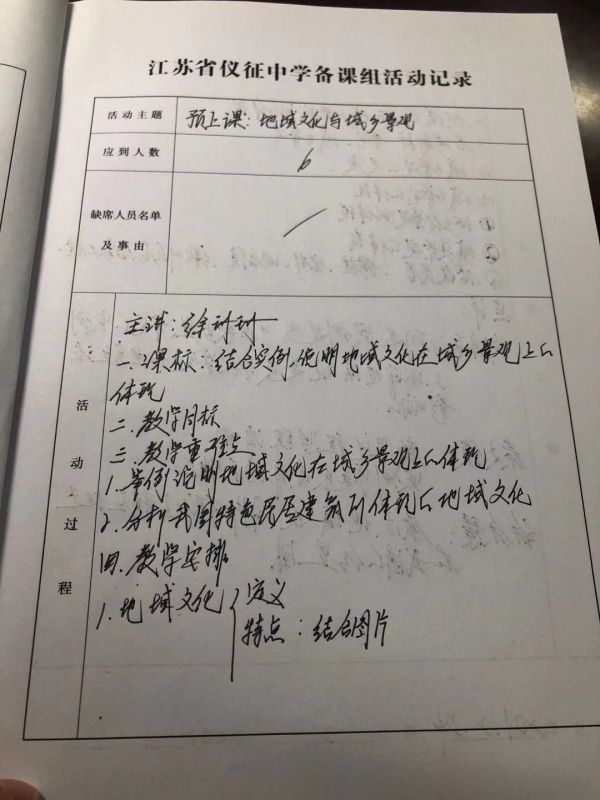 江苏省仪征中学备课组活动记录
活动主题 预上课：地域文化与城乡景观
应到人数 6
缺席人员名单及事由 /
活动过程
主讲：徐
一.课标：结合实例，说明地域文化在城乡景观上的
体现
二.教学目标
三.教学重难点
1.举例说明地域文化在城乡景观上的体现
2.分析我国特色民居建筑所体现的地域文化
四.教学安排
1.地域文化{定义
特点：结合图片